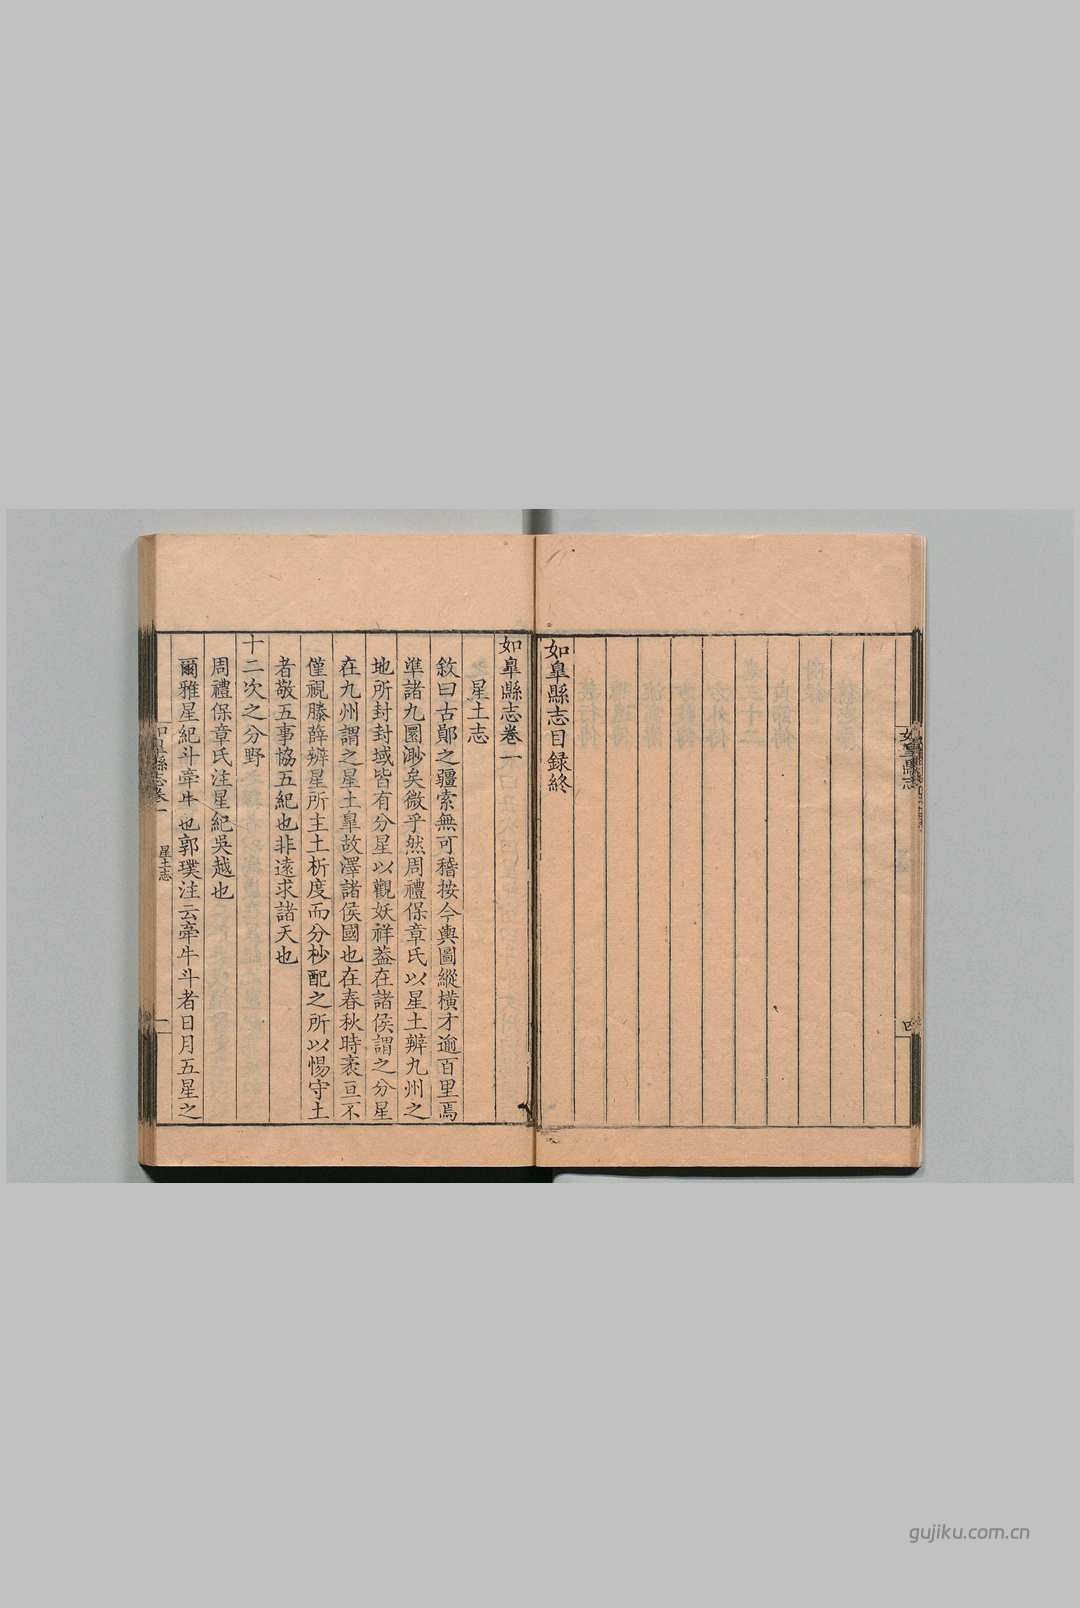 如臯縣志目録終
如臯縣志
四
如臯縣志卷一
星土志
敘曰古鄖之疆索無可稽按今輿圖縱横才逾百里焉
準諸九圜渺矣微乎然周禮保章氏以星土辨九州之
地所封封域皆有分星以觀妖祥葢在諸侯謂之分星
在九州謂之星土臯故澤諸侯國也在春秋時袤亘不
僅視滕薛辨星所主土析度而分杪配之所以惕守土
者敬五事協五紀也非遠求諸天也
十二次之分野
周禮保章氏注星紀吳越也
爾雅星紀斗牽牛也郭璞注云牽牛斗者日月五星之
如臯縣志卷一
星土志
一
gujiku.com.cn